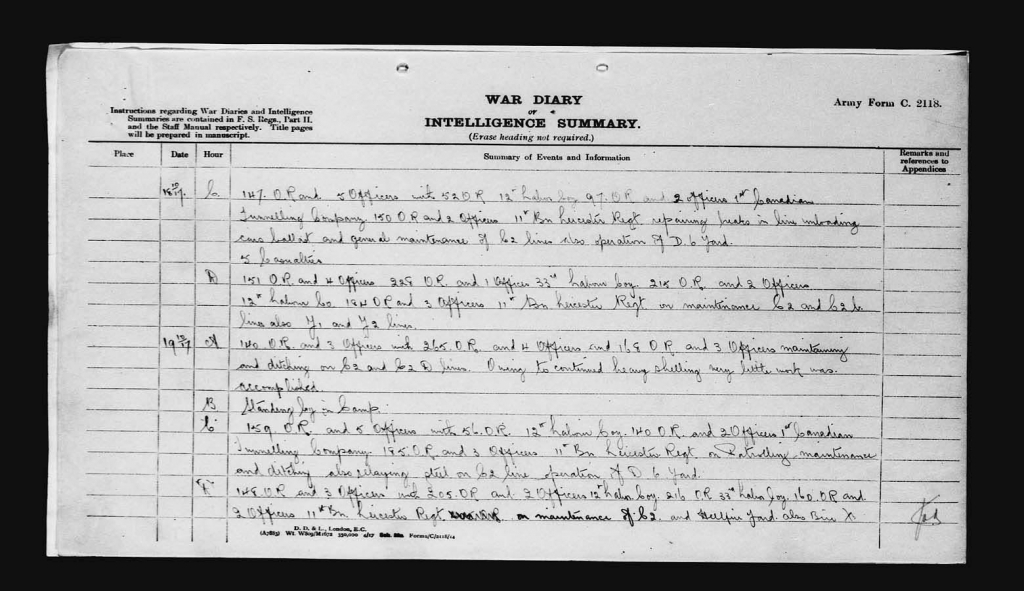 Instructions regarding War Diaries and Intelligence
Summaries are contained in F. S. Regs., Part II.
and the Staff Manual respectively. Title pages
will be prepared in manuscript.
WAR DIARY
or
INTELLIGENCE SUMMARY.
(Erase heading not required.)
Army Form C. 2118.
Place Date Hour Summary of Events and Information Remarks and references to Appendices
C 147. O.R. and 5 Officers with 52 O.R 12th Labour Coy 97. O.R and 2 officers 1st Canadian
Tunnelling Company 150 O.R and 2 Officers 11th Bn Leicester Regt repairing breaks in line unloading
cars ballast and general maintenance of C2 lines also operation of D. 6 Yard.
5 Casualties
D 151 O.R. and 4 Officers 228 O.R. and 1 Officer 33rd Labour Coy. 215 O.R. and 2 Officers
12th Labour Co. 184 O.R and 3 Officers 11th Bn Leicester Regt on maintenance C2 and C2 b
lines also Y1 and Y2 lines.
19 A 140 O.R. and 3 Officers with 265 O.R. and 4 Officers and 168 O.R. and 3 Officers maintaining
and ditching on C2 and C2 lines. Owing to continued heavy shelling very little work was
accomplished.
B Standing by in Camp.
C 159 O.R. and 5 Officers with 56. O.R. 12th Labour Coy. 140 O.R. and 2 Officers 1st Canadian
Tunnelling Company. 185 O.R and 3 Officers 11th Bn Leicester Regt. on Patrolling maintenance
and ditching also relaying steel on C2 line operation of D. 6 Yard.
148 O.R and 3 Officers with 205 O.R and 2 Officers 12th Labor Coy. 216 O.R 33rd Labor Coy. 160. O.R and
2 Officers 11th Bn Leicester Regt. on maintenance of C2. and Hellfire Yard. also
D. D. & L., London, E.C.
(A7883) Wt. W809/M1672 350,000 4/17 Forms/C/2118/14